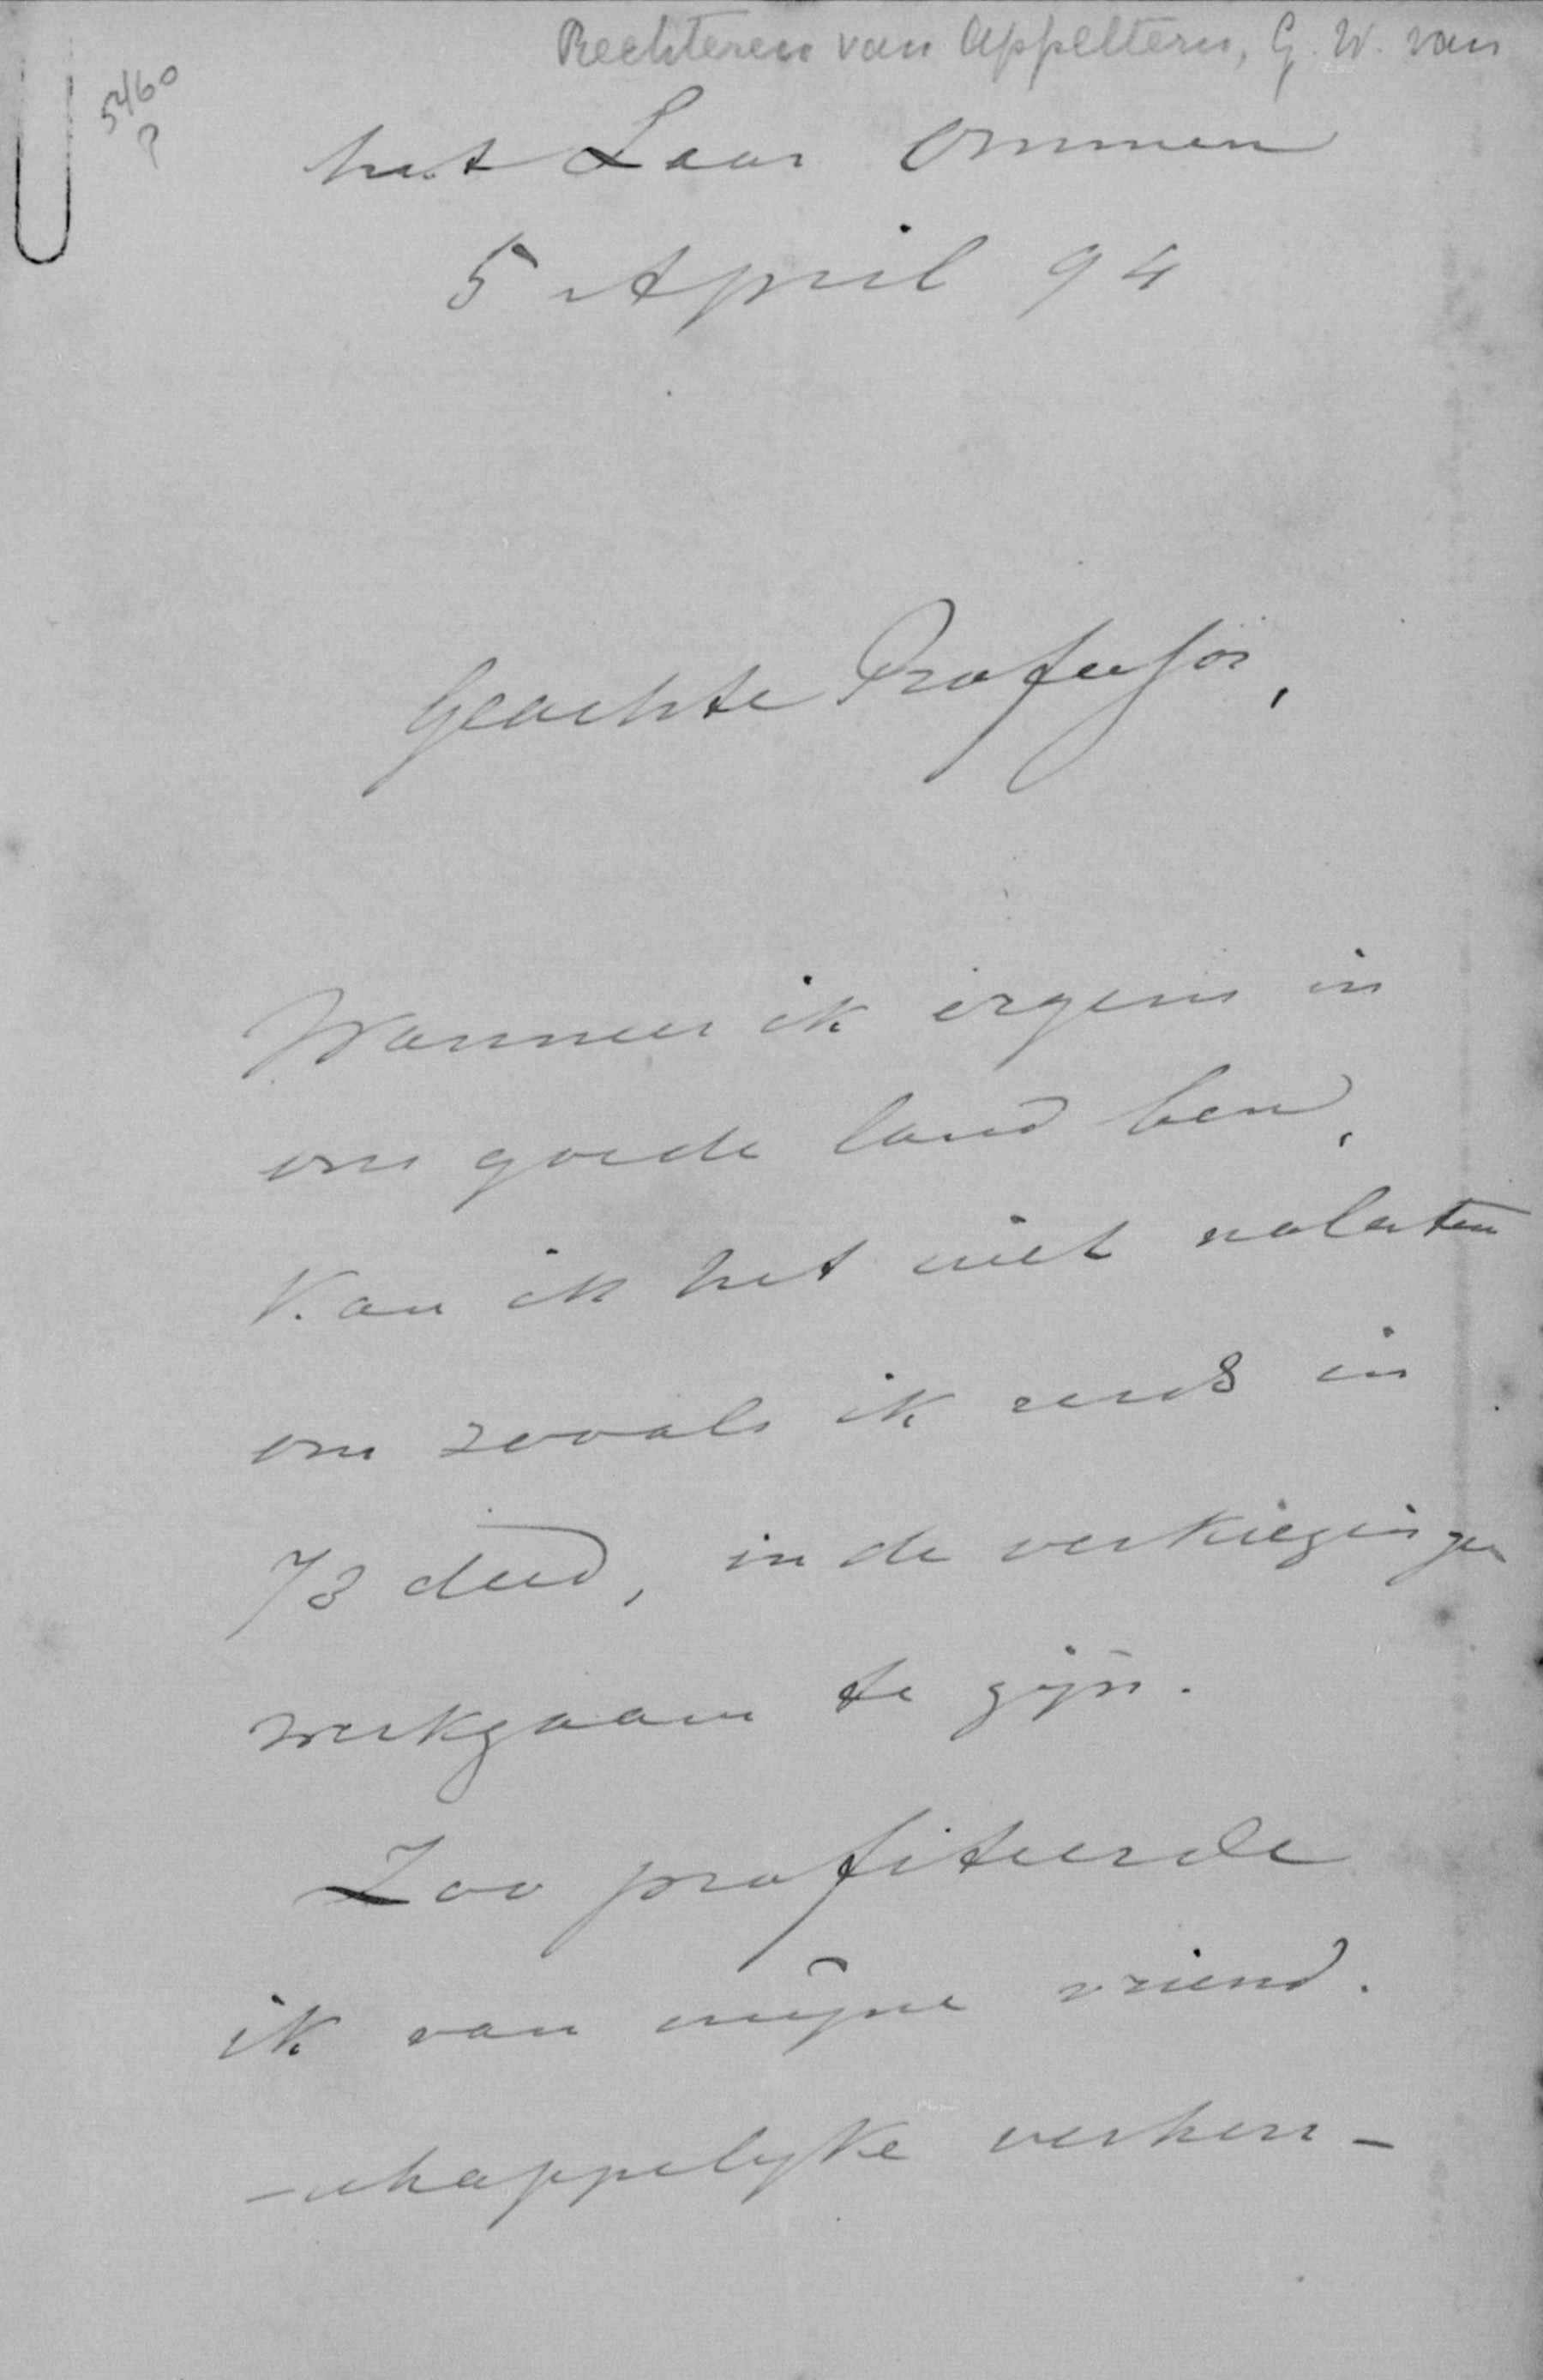 Rechteren van Appeltern, G. W. van
5460
?
het Laar Ommen
5 April 94
Geachte Professor,
Wanneer ik ergens in
ons goede land ben,
Kan ik het niet nalaten
om zooals ik reeds in
73 deed, in de verkiezingen
werkzaam te zijn.
Zoo profiteerde
ik van mijne vriend-
-schappelijke verhou-